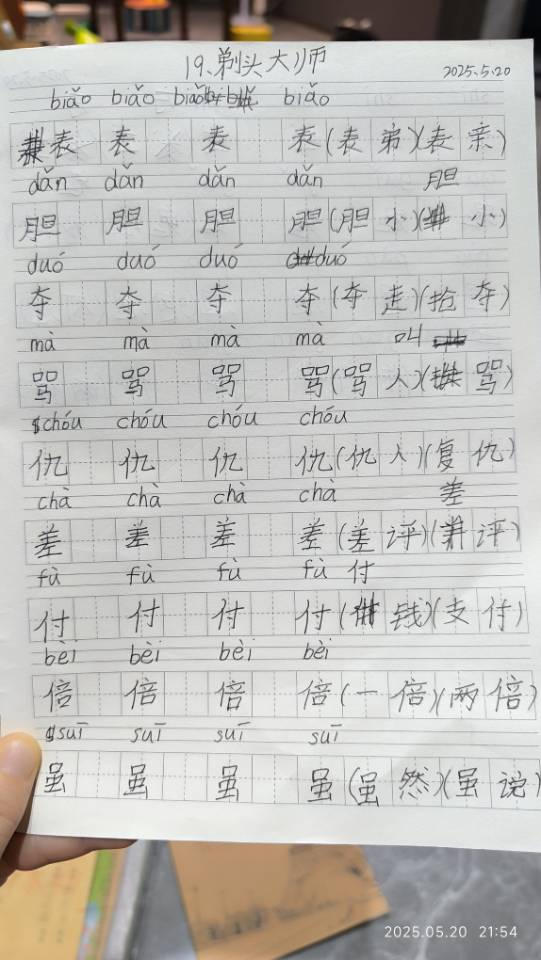 19.剃头大师
2025.5.20
biǎo biǎo biǎo biǎo
表 表 表 表(表弟)(表亲)
dǎn dǎn dǎn dǎn 胆
胆 胆 胆 胆(胆小)(小)
duó duó duó duó
夺 夺 夺 夺(夺走)(抢夺)
mà mà mà mà 叫
骂 骂 骂 骂(骂人)(骂)
chóu chóu chóu chóu
仇 仇 仇 仇(仇人)(复仇)
chà chà chà chà 差
差 差 差 差(差评)(评)
fù fù fù fù 付
付 付 付 付(钱)(支付)
bèi bèi bèi bèi
倍 倍 倍 倍(一倍)(两倍)
suī suī suī suī
虽 虽 虽 虽(虽然)(虽说)
2025.05.20 21:54